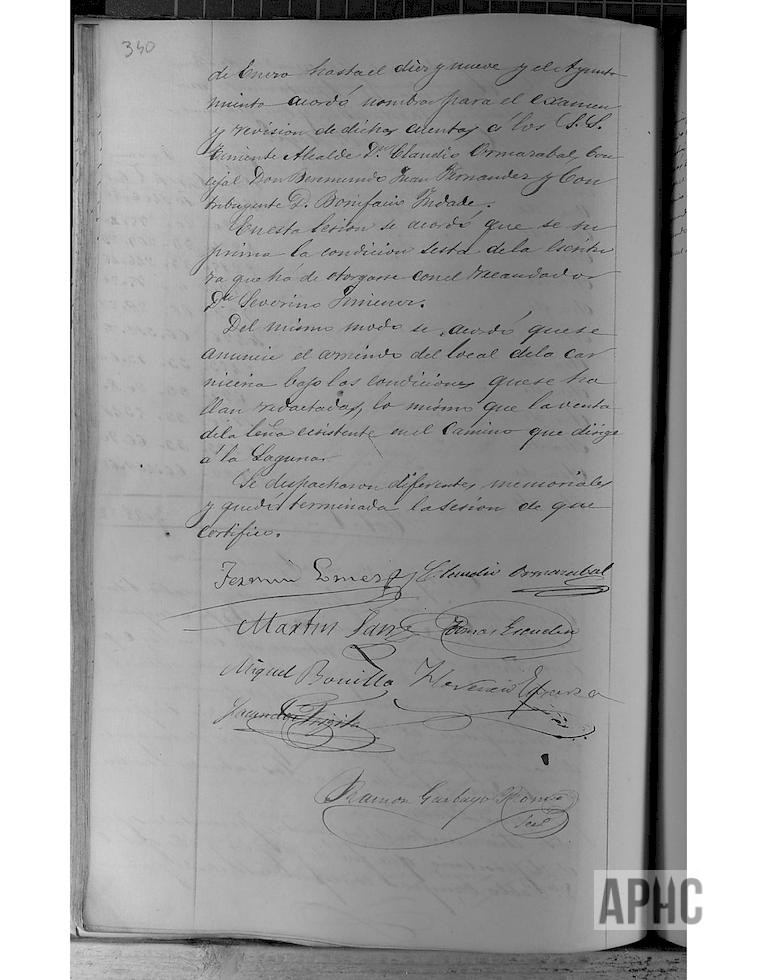 340
de Enero hasta el diez y nueve y el Ayunta
miento acordó nombrar para el examen
y revision de dichas cuentas á los S.S.
Teniente Alcalde Dn. Claudio Ormazabal, Con
cejal Don Bermundo Juan Fernandez y Con
tribuyente D. Bonifacio Indade.
En esta Sesion se acordó que se su
prima la condicion sesta de la Escritu
ra que há de otorgarse con el recaudador
Dn. Severino Jimenez.
Del mismo modo se acordó que se
anuncie el arriendo del local de la car
niceria bajo las condiciones que se ha
llan redactadas, lo mismo que la venta
de la leña ecsistente en el Camino que dirige
á la Laguna.
Se despacharon diferentes memoriales
y quedó terminada la sesion de que
certifico.
Fermin Claudio Ormazabal
Martin Sanz Tomas Escudero
Miguel Bonilla Florencio Esparza
Ramon Garbayo
Secº
APHC